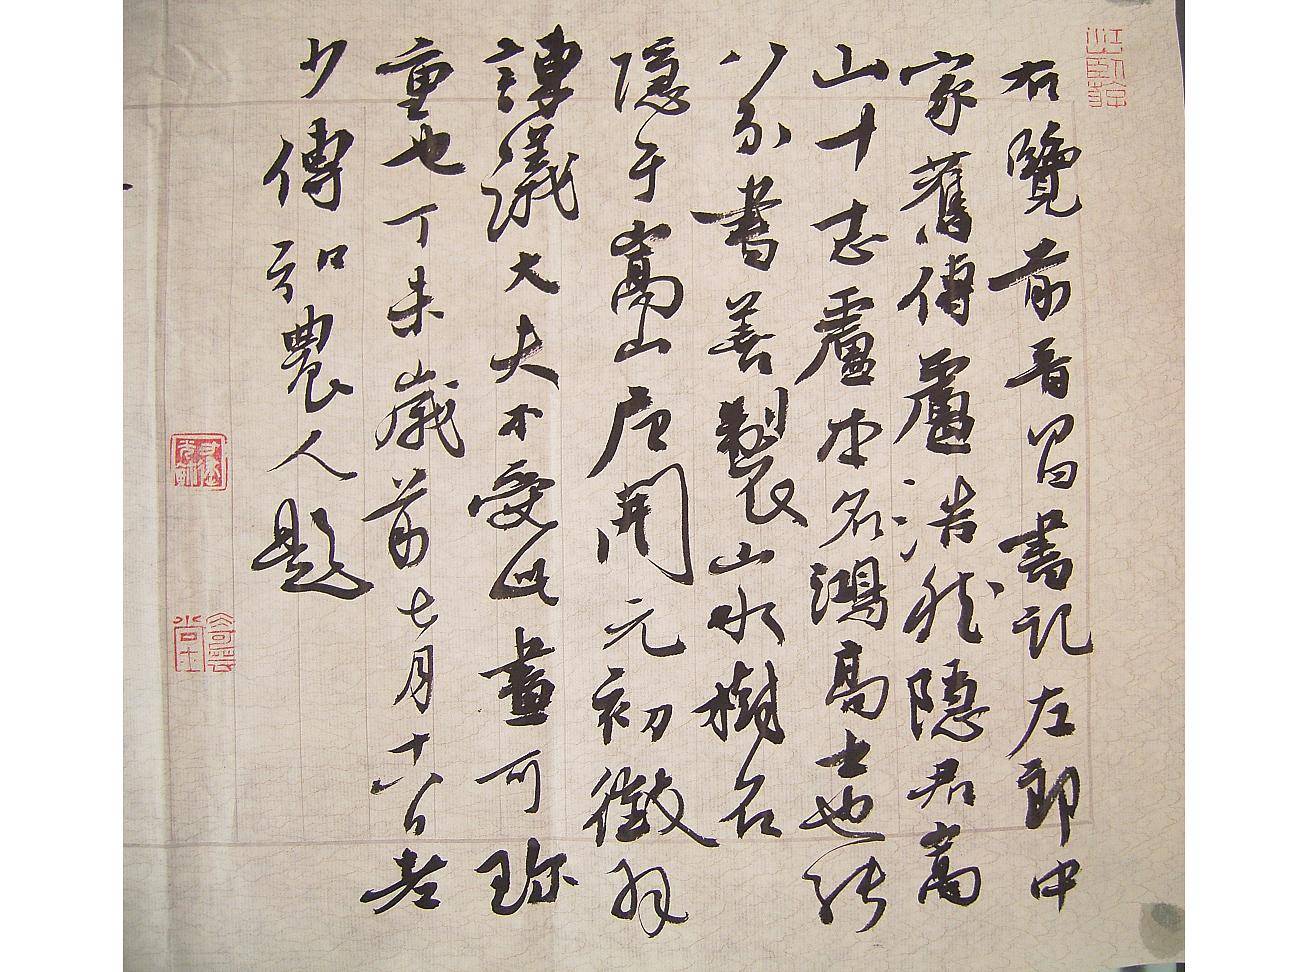 右覽前晉昌書記左郎中
家舊傳盧浩然隱居嵩
山十志盧本名鴻高士也能
八分書善製山水樹石
隱于嵩山唐開元初徵拜
諫議大夫不受此畫可珍
重也丁未歲前七月十八日老
少傅弘農人題